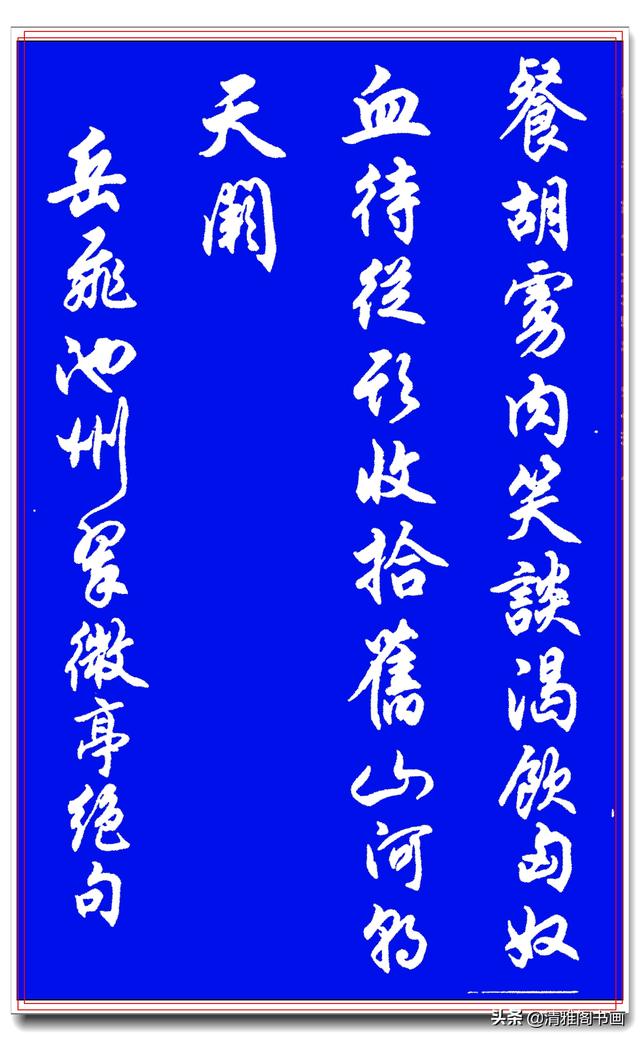 餐胡虜肉笑談渴飲匈奴
血待從頭收拾舊山河朝
天闕
岳飛池州翠微亭絕句
头条 @清雅阁书画